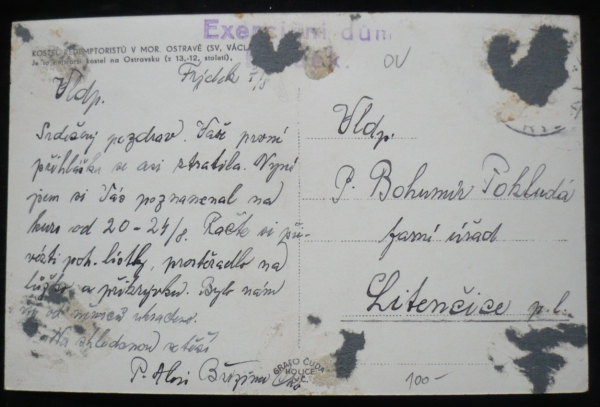 Exerciční dům
KOSTEL REDEMPTORISTŮ V MOR. OSTRAVĚ (SV. VÁCL
Je to nejstarší kostel na Ostravsku (z 13.-12. století),
Frýdek
OV
Vldp.
Srdečný pozdrav. Vaše první
přihláška se asi ztratila. Nyní
jsem si Vás poznamenal na
kurs od 20-24/8. Račte si při-
vézti poh. lístky, prostěradlo na
lůžko a přikrývku. Bylo nám
Na shledanou se těší
P. Alois Březina
Vldp.
P. Bohumír Pokludá
farní úřad
Litenčice p. l.
GRAFO ČUDA
HOLICE
100-